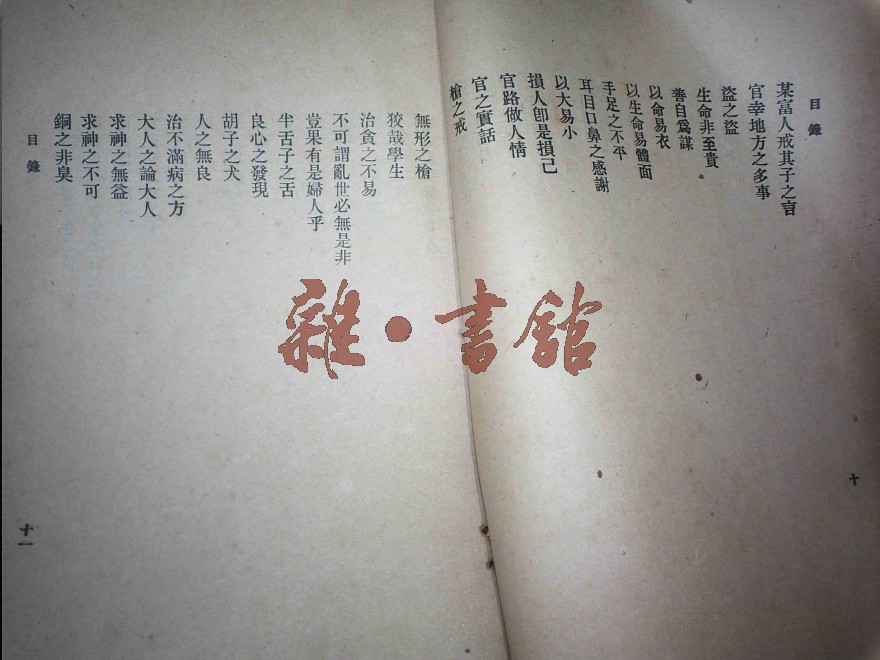 目錄
某富人戒其子之言
官幸地方之多事
盜之盜
生命非至貴
善自爲謀
以命易衣
以生命易體面
手足之不平
耳目口鼻之感謝
以大易小
損人卽是損己
官路做人情
官之實話
槍之戒
十
無形之槍
狡哉學生
治貪之不易
不可謂亂世必無是非
豈果有是婦人乎
半舌子之舌
良心之發現
胡子之犬
人之無良
治不滿病之方
大人之論大人
求神之無益
求神之不可
銅之非臭
目錄
十一
雜·書館